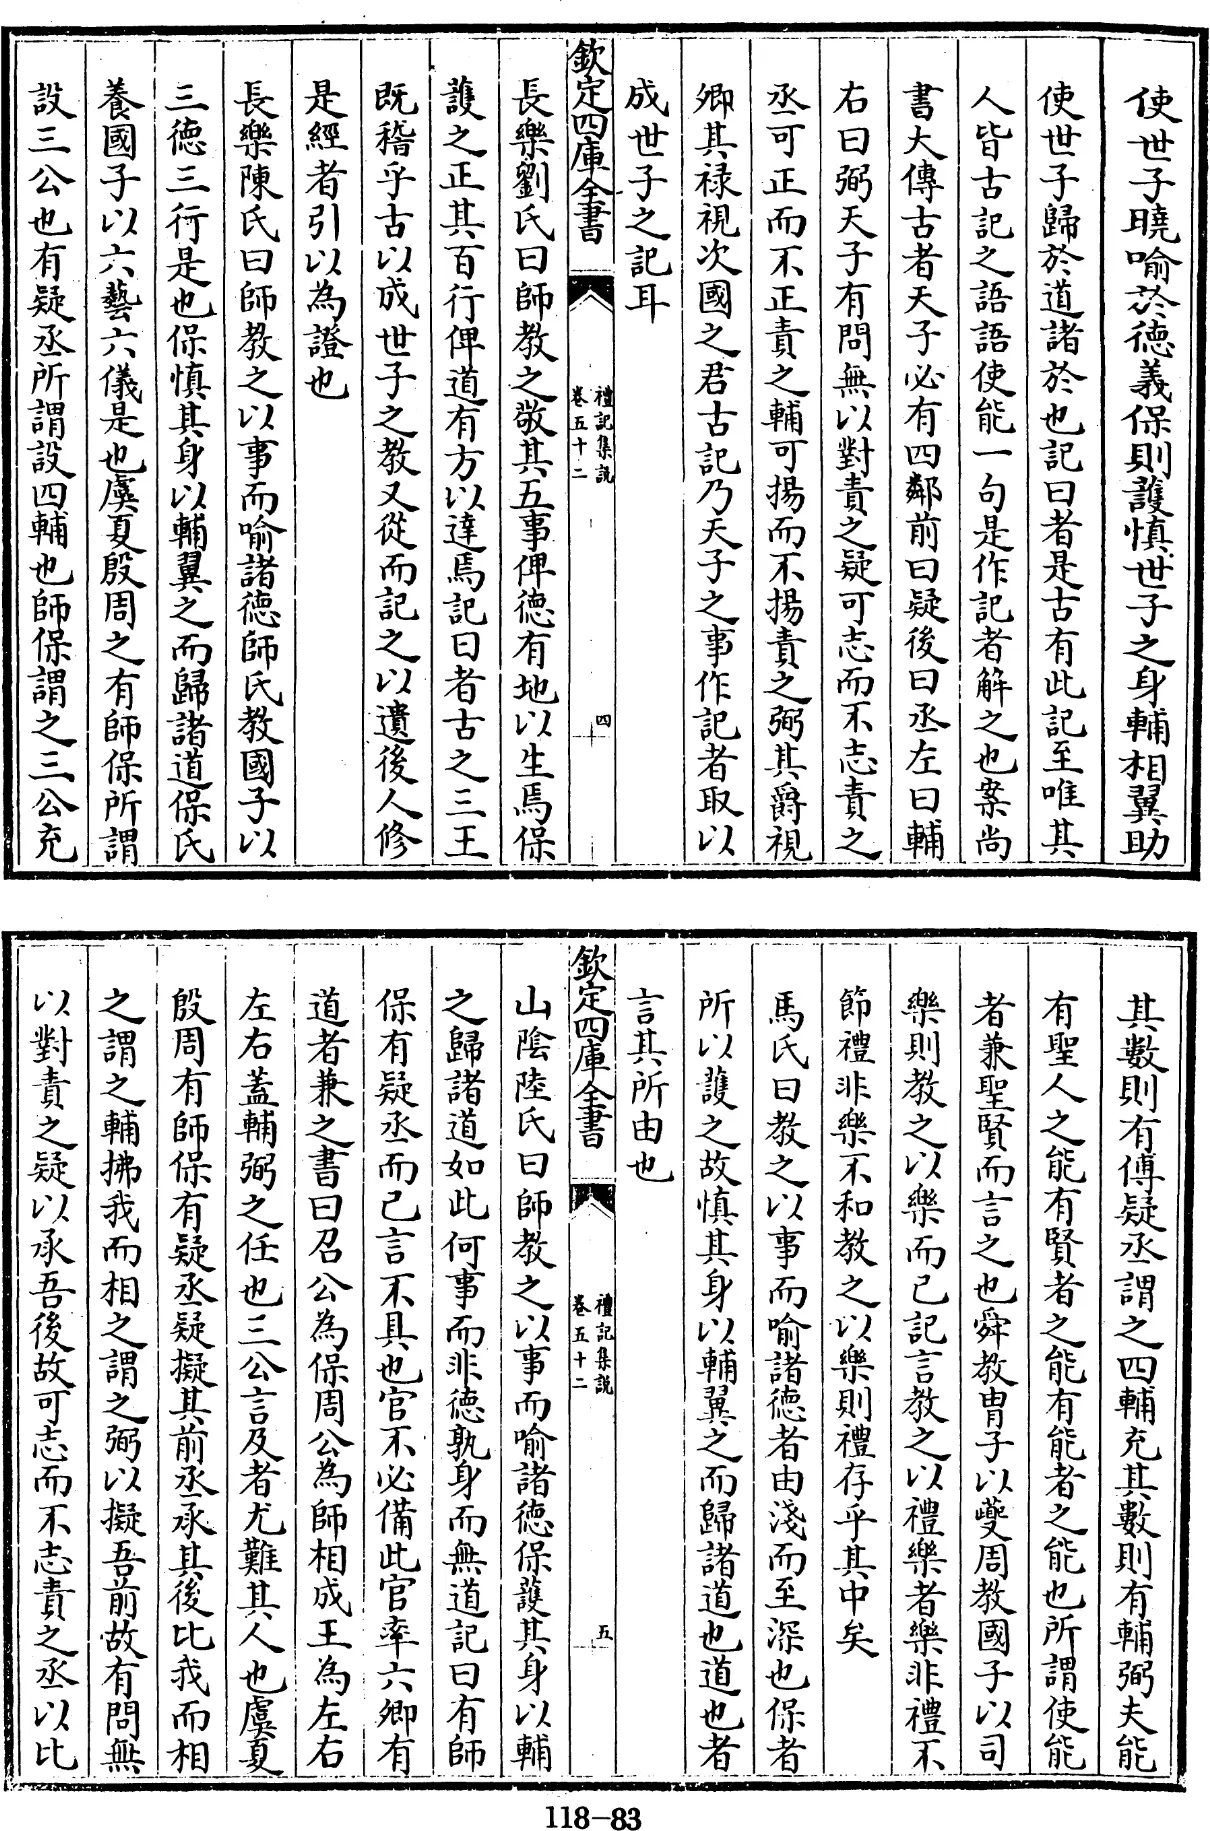 使世子曉喻於德義保則護慎世子之身輔相翼助
使世子歸於道諸於也記曰者是古有此記至唯其
人皆古記之語語使能一句是作記者解之也案尚
書大傳古者天子必有四鄰前曰疑後曰丞左曰輔
右曰弼天子有問無以對責之疑可志而不志責之
丞可正而不正責之輔可揚而不揚責之弼其爵視
卿其禄視次國之君古記乃天子之事作記者取以
成世子之記耳
欽定四庫全書
禮記集說
卷五十二
四
長樂劉氏曰師教之敬其五事俾德有地以生焉保
護之正其百行俾道有方以達焉記曰者古之三王
既稽乎古以成世子之教又從而記之以遺後人修
是經者引以為證也
長樂陳氏曰師教之以事而喻諸德師氏教國子以
三德三行是也保慎其身以輔翼之而歸諸道保氏
養國子以六藝六儀是也虞夏殷周之有師保所謂
設三公也有疑丞所謂設四輔也師保謂之三公充
其數則有傅疑丞謂之四輔充其數則有輔弼夫能
有聖人之能有賢者之能有能者之能也所謂使能
者兼聖賢而言之也舜教胄子以夔周教國子以司
樂則教之以樂而已記言教之以禮樂者樂非禮不
節禮非樂不和教之以樂則禮存乎其中矣
馬氏曰教之以事而喻諸德者由淺而至深也保者
所以護之故慎其身以輔翼之而歸諸道也道也者
言其所由也
欽定四庫全書
禮記集說
卷五十二
五
山陰陸氏曰師教之以事而喻諸德保護其身以輔
之歸諸道如此何事而非德孰身而無道記曰有師
保有疑丞而已言不具也官不必備此官率六卿有
道者兼之書曰召公為保周公為師相成王為左右
左右蓋輔弼之任也三公言及者尤難其人也虞夏
殷周有師保有疑丞疑擬其前丞承其後比我而相
之謂之輔拂我而相之謂之弼以擬吾前故有問無
以對責之疑以承吾後故可志而不志責之丞以比
118-83